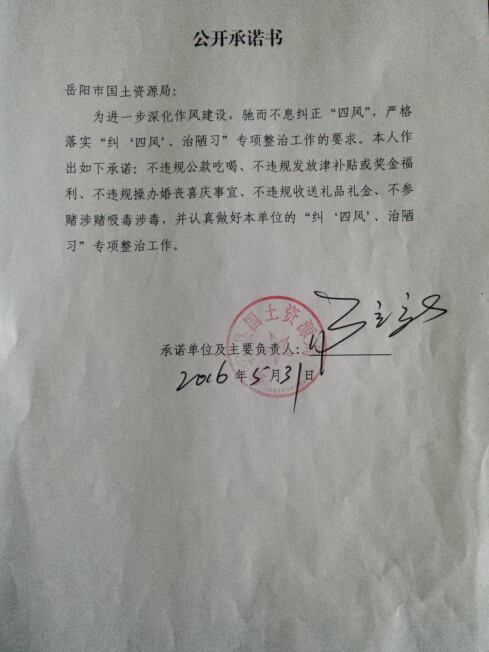 公开承诺书
岳阳市国土资源局：
为进一步深化作风建设，驰而不息纠正“四风”，严格
落实“纠‘四风’、治陋习”专项整治工作的要求。本人作
出如下承诺：不违规公款吃喝、不违规发放津补贴或奖金福
利、不违规操办婚丧喜庆事宜、不违规收送礼品礼金、不参
赌涉赌吸毒涉毒，并认真做好本单位的“纠‘四风’、治陋
习”专项整治工作。
国土资源
承诺单位及主要负责人：
2016年5月31日